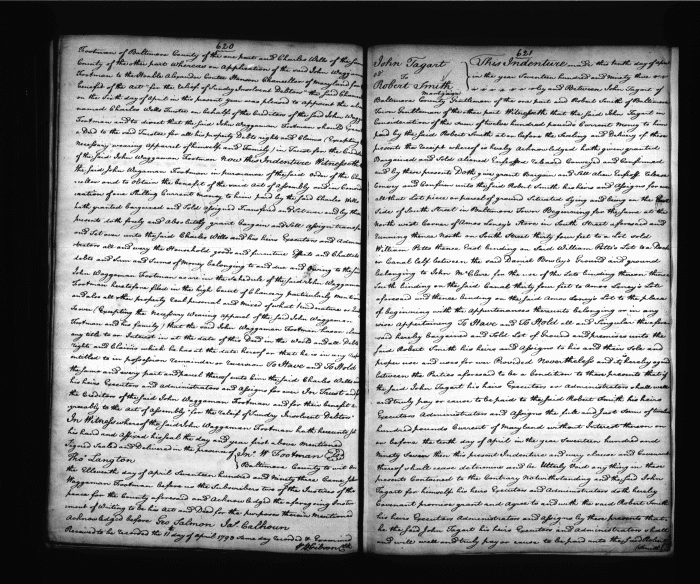 620
Footman of Baltimore County of the one part and Charles Wells of the same
County of the other part Whereas on Application of the said John Waggaman
Footman to the Honble Alexander Contee Hanson Chancellor of Maryland for
benefit of the Act "for the relief of Sundry Insolvent Debtors" the said Chancellor
on the day of April in this present year was pleased to appoint the above
named Charles Wells Trustee on behalf of the Creditors of the said John Waggaman
Footman and to direct that the said John Waggaman Footman should Execute
a Deed to the said Trustee for all his property Debts rights and Claims (Excepting the
Necessary wearing Apparel of himself and Family) in Trust for the Creditors
of the said John Waggaman Footman Now this Indenture Witnesseth
the said John Waggaman Footman in pursuance of the said Order of the Chan
cellor and to obtain the benefit of the said Act of Assembly and in Conside
ration of one Shilling Current money to him paid by the said Charles Wells
hath granted bargained and Sold Assigned Transfered and Set over and by these
presents doth freely and Absolutely grant bargain and Sell Assign transfer
and Set over unto the said Charles Wells and his heirs Executors and Admin
istrators all and every the Household goods and furniture Effects and Chattels
debts and Sum and Sums of Money belonging to and due and Owing to the said
John Waggaman Footman and in the schedule of the said John Waggaman
Footman heretofore filed in the high Court of Chancery particularly mentioned
and also all other property real personal and Mixed of what kind nature or
soever (Excepting the necessary Wearing apparel of the said John Waggaman
Footman and his family) that the said John Waggaman Footman
any title to or Interest in at the date of this Deed in the World and all Debts
rights and Claims which he has at the date hereof or that he is in any
entitled to in possession Remainder or reversion To Have and To Hold
the same and every part and parcel thereof unto him the said Charles Wells and
his heirs Executors and Administrators and Assigns for ever In Trust
the Creditors of the said John Waggaman Footman and for their benefit
agreeably to the Act of Assembly "for the relief of Sundry Insolvent Debtors"
In Witness whereof the said John Waggaman Footman hath hereunto set
his hand and affixed his seal the day and year first above Mentioned
Signed Sealed and Delivered in the presence of Jno W Footman
Thos Langton Baltimore County to wit on
the Eleventh day of April Seventeen hundred and Ninety three Came John
Waggaman Footman before us the Subscribers two of the Justices of the
peace for the County aforesaid and Acknowledged the aforegoing Instru
ment of Writing to be his Act and Deed for the purposes therein Mentioned
Acknowledged before Geo Salmon Jas Calhoun
Received to be recorded the 11th day of April 1793 same day recorded & Examined
Gibson
621
John Tagart
To
Robert Smith
Mortgage
This Indenture made this tenth day of April
in the year Seventeen hundred and Ninety three
by and Between John Tagart of
Baltimore County Gentleman of the one part and Robert Smith of Baltimore
Town Gentleman of the other part Witnesseth that the said John Tagart in
Consideration of the sum of twelve hundred pounds Current Money to him
paid by the said Robert Smith at or before the Sealing and Delivery of these
presents the receipt whereof is hereby Acknowledged hath given granted
Bargained and Sold Aliened Enfeoffed released Conveyed and Confirmed
and by these presents Doth give grant Bargain and Sell Alien Enfeoff release
Convey and Confirm unto the said Robert Smith his heirs and Assigns for ever
All that Lot piece or parcel of ground Situated Lying and being on the West
Side of South Street in Baltimore Town Beginning for the same at the
North west Corner of Amos Loney's House in South Street aforesaid and
running thence North on South Street thirty four feet to a Lot sold
William Potts thence East binding on said William Potts's Lot to a Dock
or Canal left between the said Daniel Bowley's Ground and ground
belonging to John McClure for the use of the Lots binding thereon thence
South binding on the said Canal thirty four feet to Amos Loney's Lot
aforesaid and thence binding on the said Amos Loney's Lot to the place
of beginning with the Appurtenances thereunto belonging or in any
wise appertaining To Have and To Hold all and Singular the afore
said hereby bargained and Sold Lot of Ground and premises unto the
said Robert Smith his heirs and Assigns to his and their Use and
proper Use and uses for ever Provided Nevertheless and it is hereby agreed
between the Parties aforesaid to be a Condition to these presents that if
the said John Tagart his heirs Executors or Administrators shall well
and truly pay or cause to be paid to the said Robert Smith his heirs
Executors Administrators and Assigns the full and Just Sum of twelve
hundred pounds Current of Maryland without Interest thereon on
or before the tenth day of April in the year Seventeen hundred and
Ninety Seven then this present Indenture and every clause and Covenant
thereof shall cease determine and be Utterly Void any thing in these
presents Contained to the Contrary Notwithstanding and the said John
Tagart for himself his heirs Executors and Administrators doth hereby
Covenant promise grant and Agree to and with the said Robert Smith
his heirs Executors Administrators and Assigns by these presents that
he the said John Tagart his heirs Executors and Administrators shall
and will well and truly pay or cause to be paid unto the said Robert